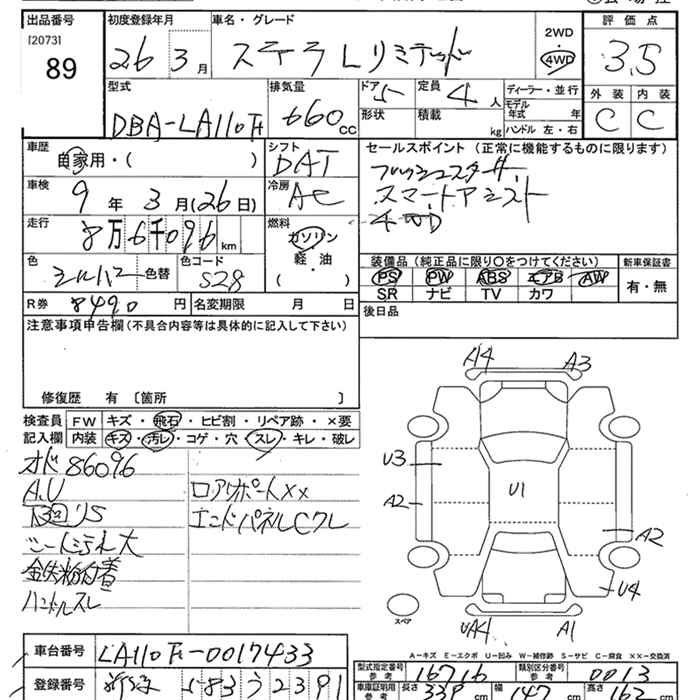 出品番号 初度登録年月 車名・グレード 評価点
[2073] 89
26年 3月 ステラ Lリミテッド 2WD 4WD 3.5
型式 排気量 ドア 定員 ディーラー・並行 外装 内装
DBA-LA110F 660cc 5 4人 モデル年式 年 C C
形状 積載 kg ハンドル 左・右
車歴 シフト セールスポイント (正常に機能するものに限ります)
自家用・( ) DAT
車検 冷房 スマートアシスト
9年 3月(26日) AC 4WD
走行 燃料
8万6千096km ガソリン 軽・油 ( )
色 色コード 装備品 (純正品に限り○をつけてください) 新車保証書
シルバー 色替 S28 PS PW ABS エアB AW 有・無
SR ナビ TV カワ
R券 8490円 名変期限 月 日 後日品
注意事項申告欄 (不具合内容等は具体的に記入して下さい)
修復歴 有 〔箇所 〕
検査員 FW キズ・飛石・ヒビ割・リペア跡・×要
記入欄 内装 キズ・汚レ・コゲ・穴・スレ・キレ・破レ
オド86096
A.U ロアサポートXX
エンドパネルCワレ
シート汚れ大
鉄粉付着
ハンドルスレ
A4 A3
U3
U1
A2
A2
U4
UA4 A1
スペア
A-キズ E-エクボ U-凹み W-補修跡 S-サビ C-腐食 XX-交換済
車台番号 LA110F-0017433 型式指定番号 参考 16716 類別区分番号 参考 0013
登録番号 583 う 2391 車庫証明用 参考 長さ 339cm 幅 147cm 高さ 162cm